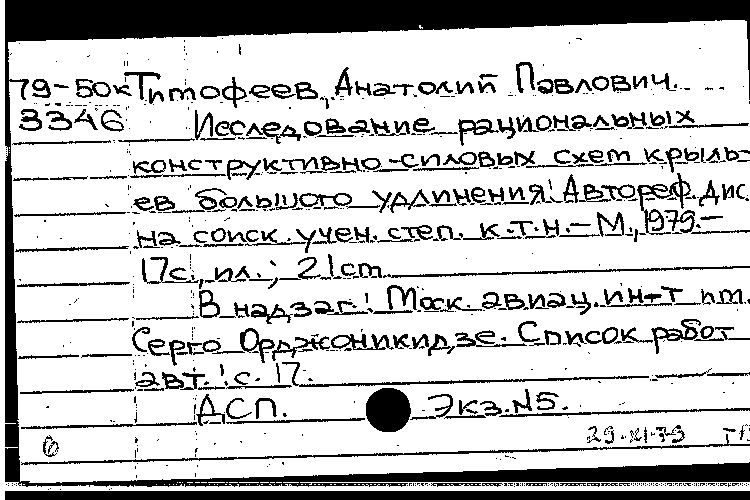 79-50к Тимофеев, Анатолий Павлович.
3346 Исследование рациональных
конструктивно-силовых схем крыль-
ев большого удлинения: Автореф. дис.
на соиск. учен. степ. к.т.н. - М., 1979. -
17с., ил.; 21cm
В надзаг.: Моск. авиац. ин-т им.
Серго Орджоникидзе. Список работ
авт.: с. 17.
ДСП. Экз.N5.
29.XI.79